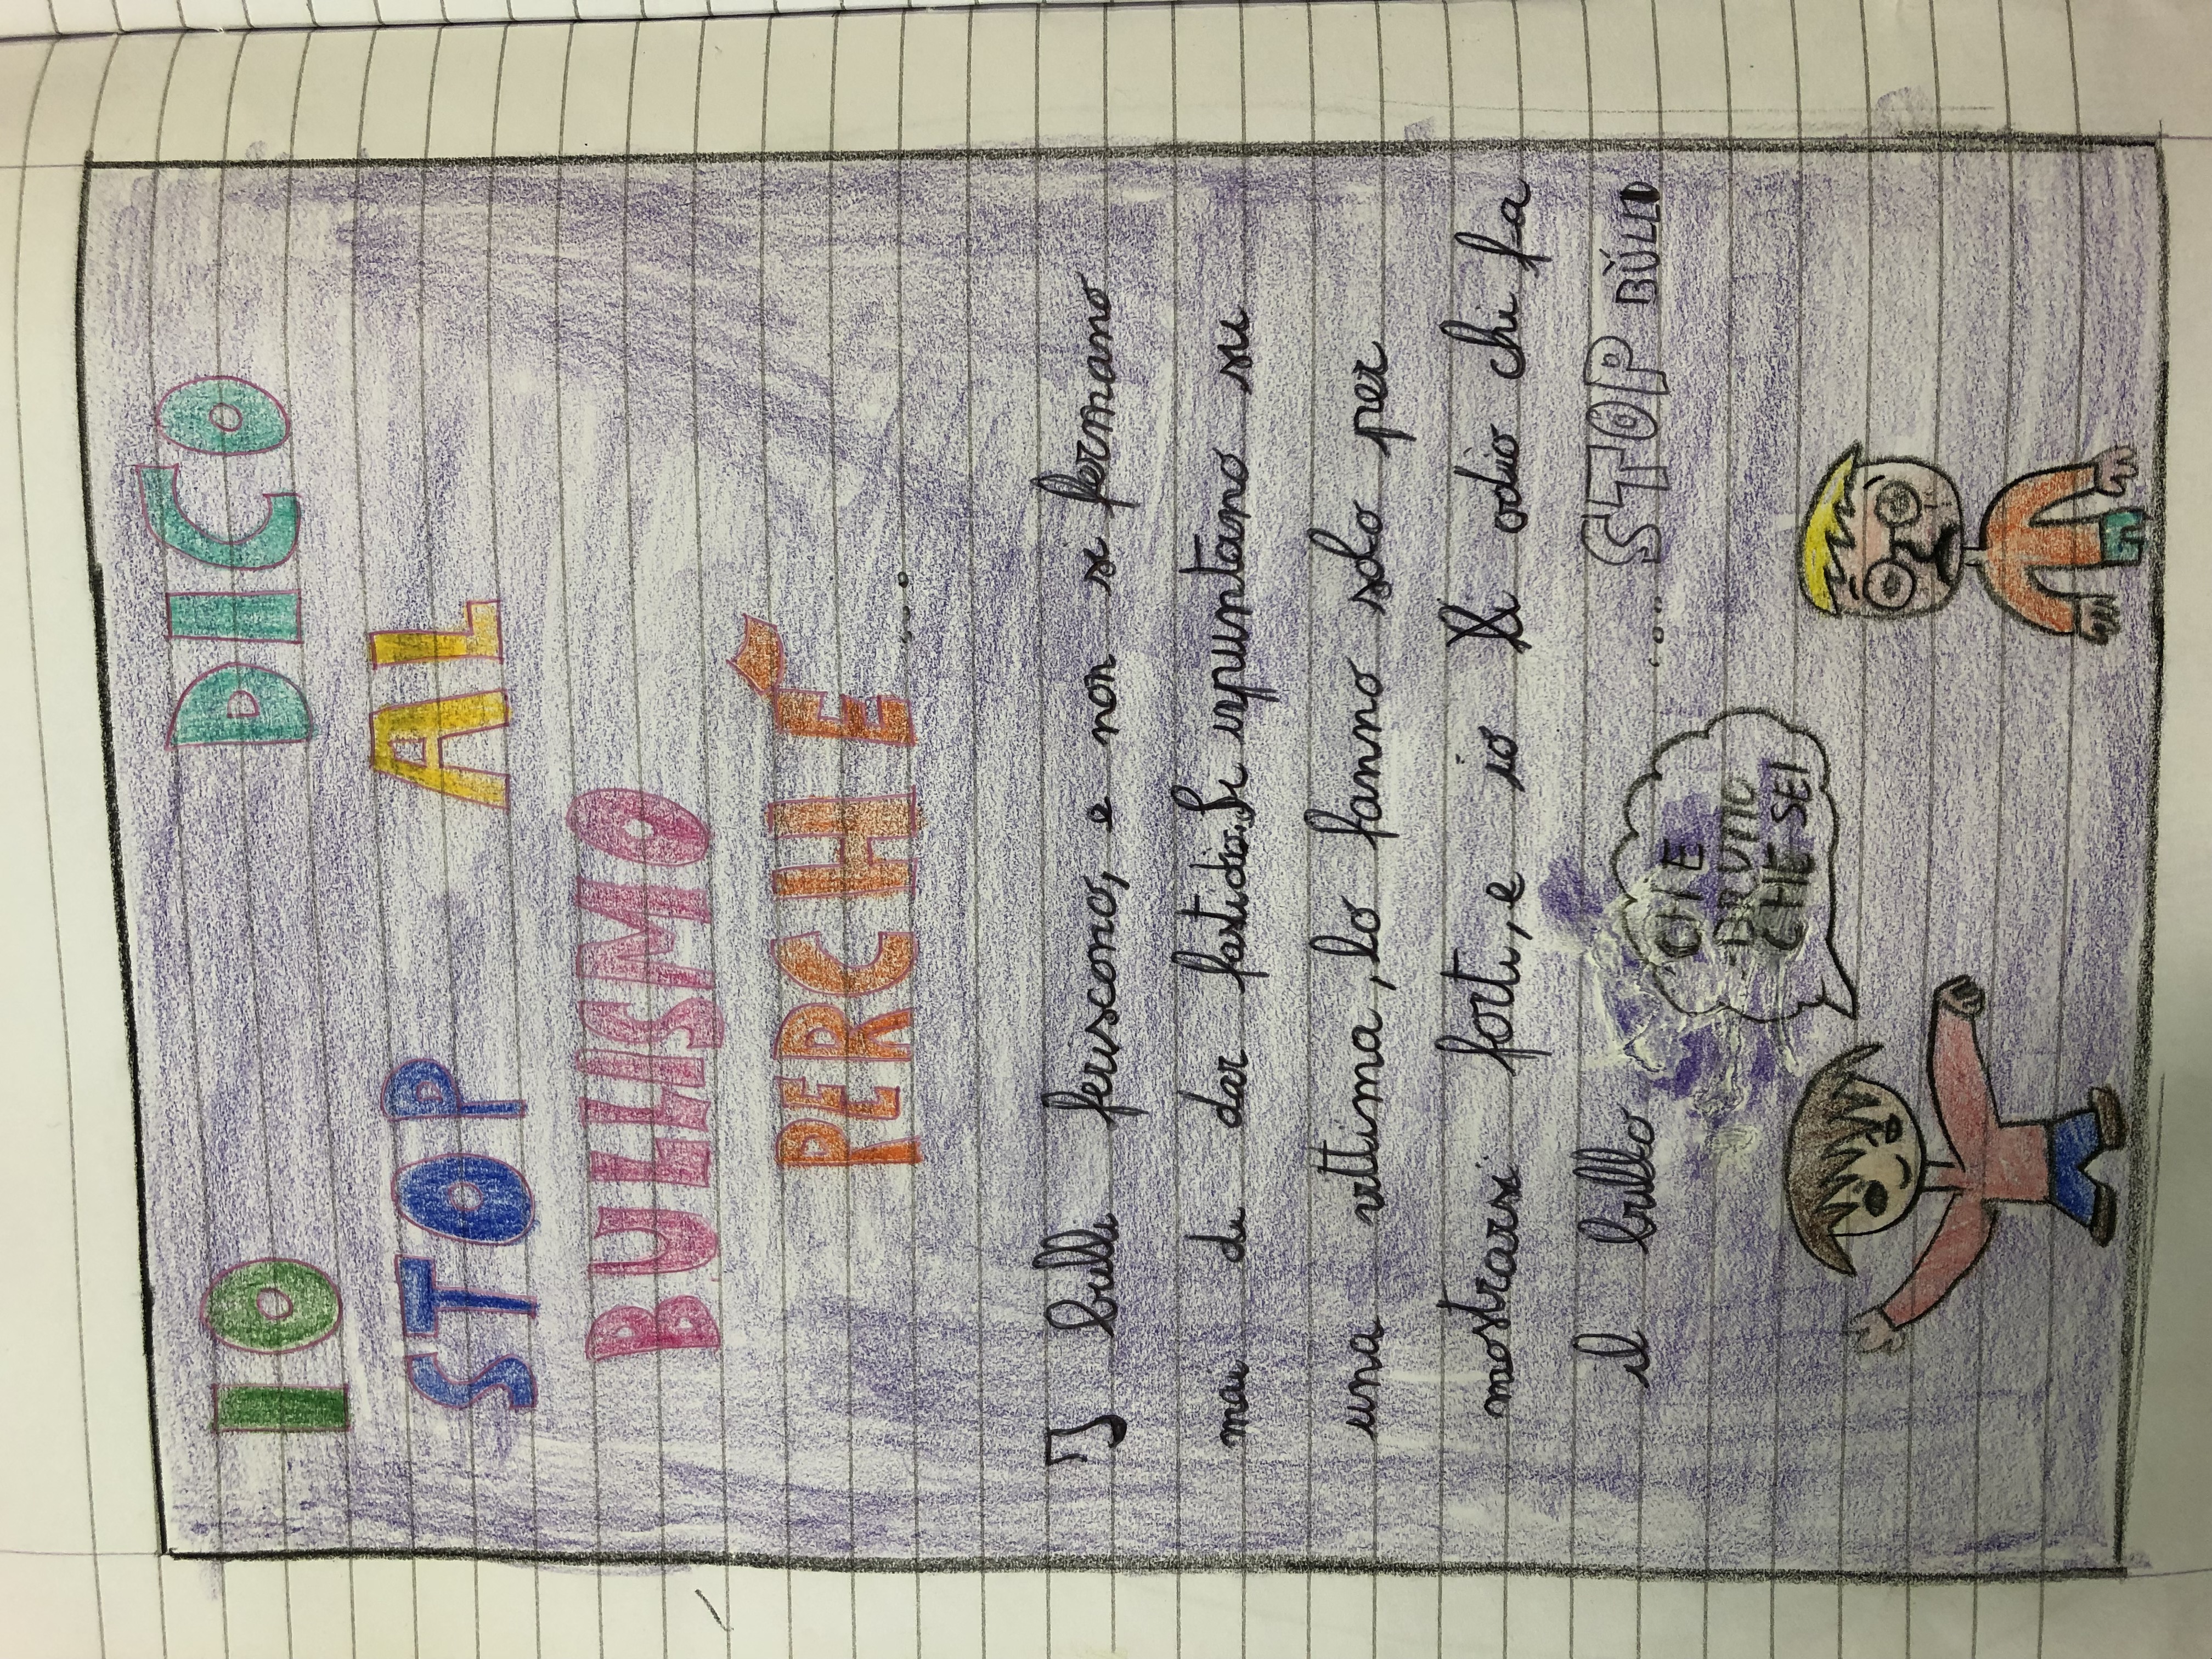 IO DICO
STOP AL
BULLISMO
PERCHÉ...
I bulli feriscono, e non si fermano
mai di dar fastidio. Si inpuntano su
una vittima, lo fanno solo per
mostrarsi forti, e io li odio chi fa
il bullo .... STOP BULLO
CHE
BRUTTO
CHE SEI